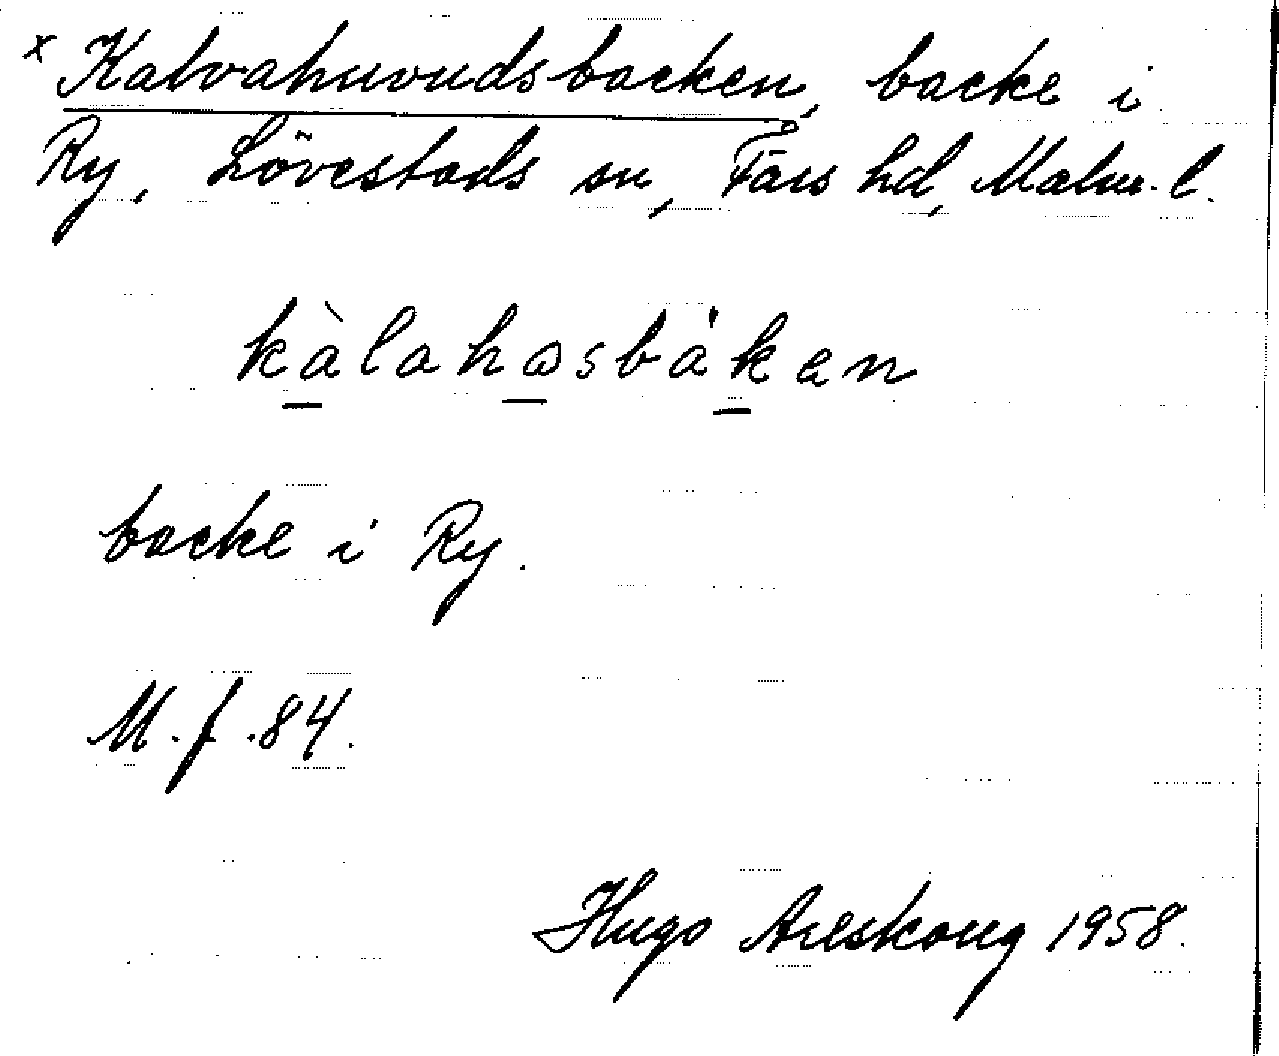 x Kalvahuvudsbacken, backe i
Ry, Lövestads sn, Färs hd, Malm. l.
kàlahɷsbákan
backe i Ry.
M. f. 84.
Hugo Areskoug 1958.